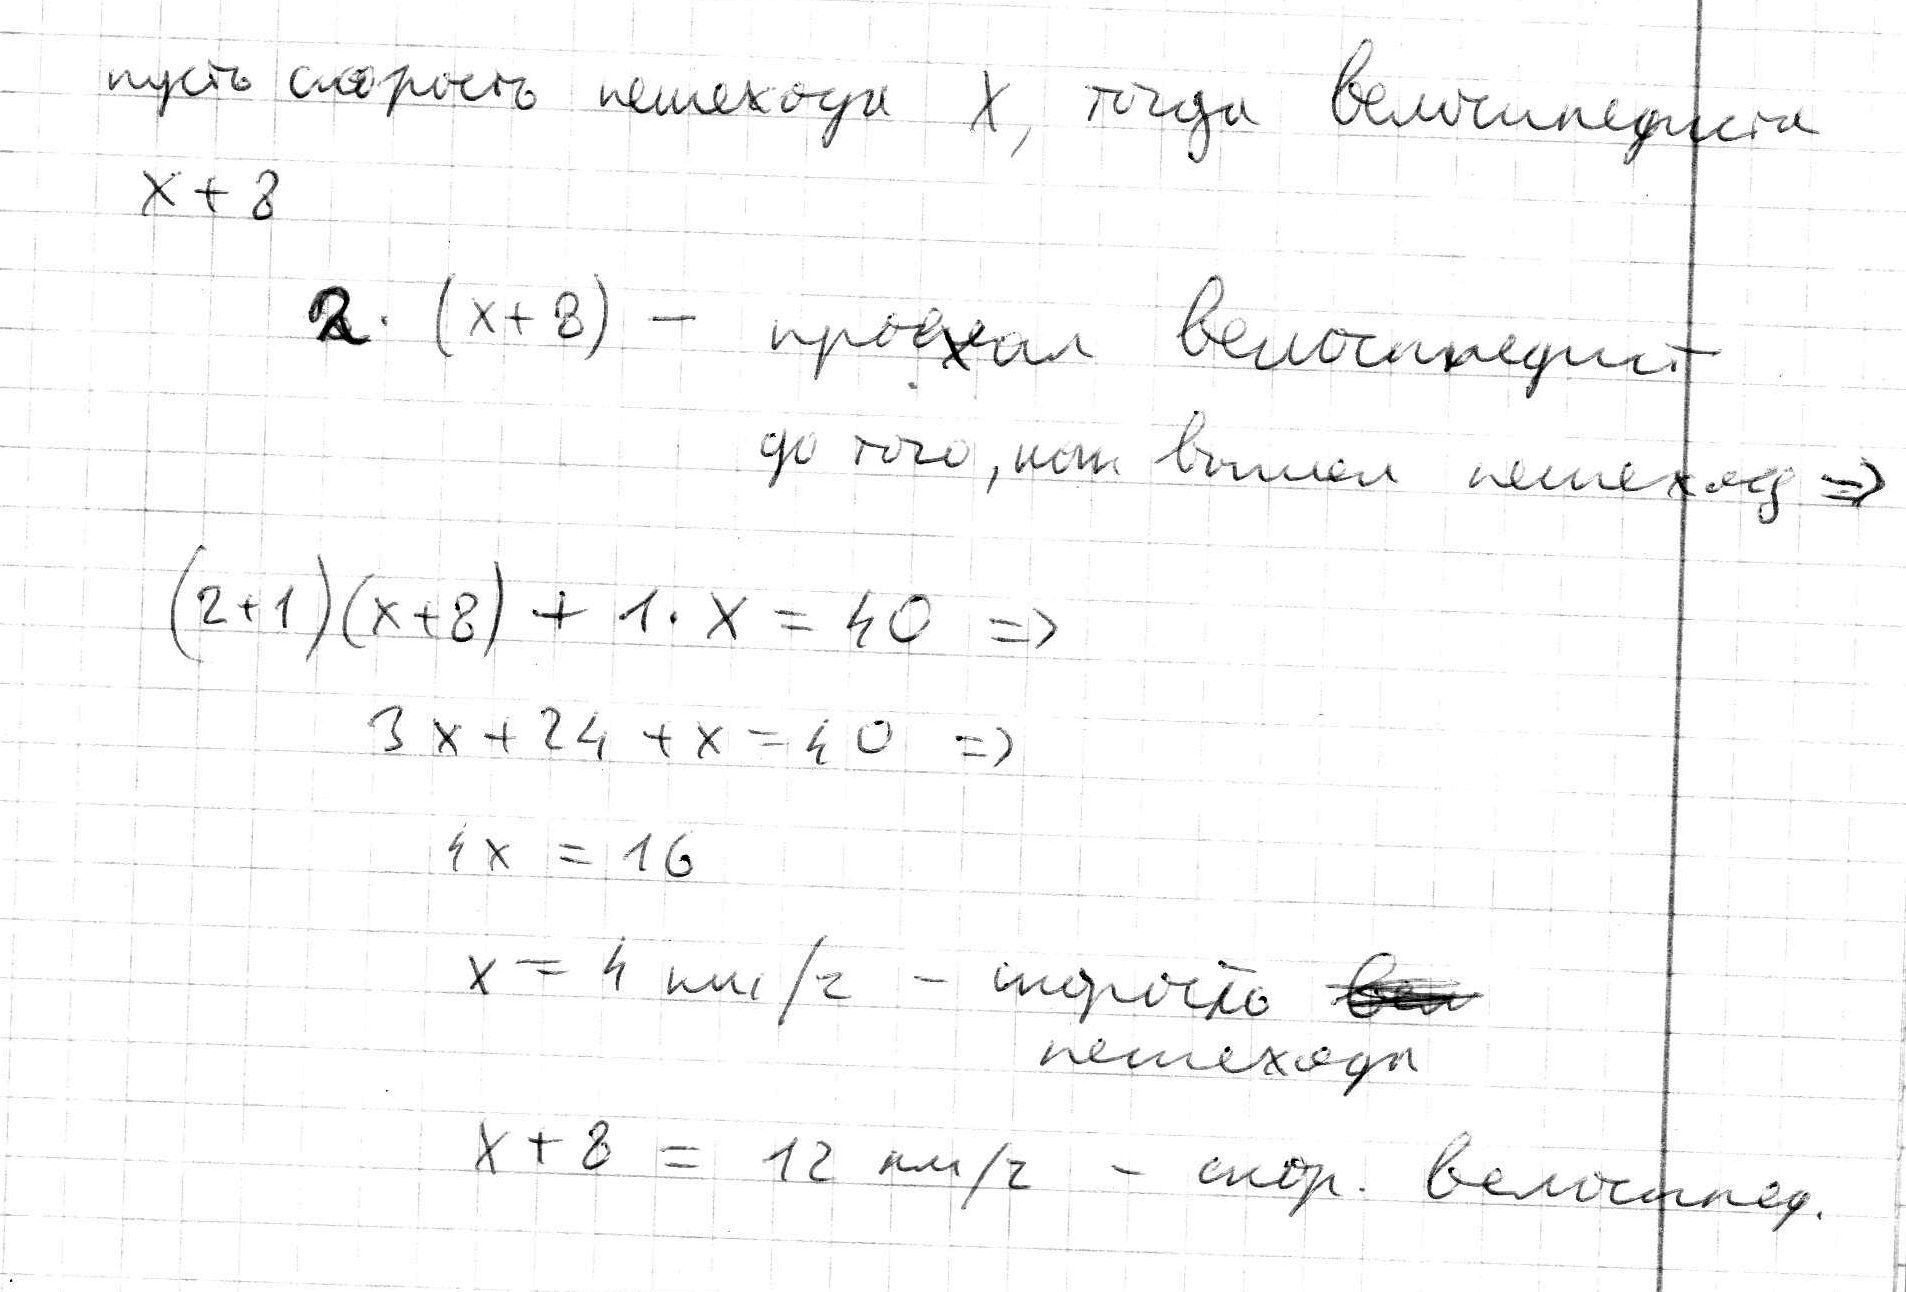 пусть скорость пешехода x, тогда велосипедиста
x + 8
2 · (x + 8) – проехал велосипедист
до того, как вышел пешеход =>
(2+1)(x+8) + 1 · x = 40 =>
3x + 24 + x = 40 =>
4x = 16
x = 4 км/ч – скорость
пешехода
x + 8 = 12 км/ч – скор. велосипед.